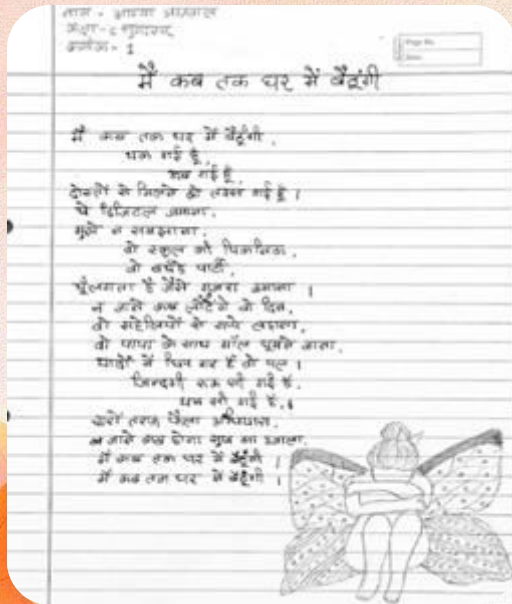 नाम - आद्या अग्रवाल
कक्षा - 6 गुलाब
क्रमांक - 1
Page No.
Date
मैं कब तक घर में बैठूंगी
मैं कब तक घर में बैठूंगी,
थक गई हूँ,
पक गई हूँ,
दोस्तों से मिलने को तरस गई हूँ।
ये डिजिटल जमाना,
मुझे न समझाना,
वो स्कूल की पिकनिक,
वो बर्थडे पार्टी,
यूँ लगता है जैसे गुजरा जमाना।
न जाने कब लौटेंगे वो दिन,
वो सहेलियों से गप्पे लड़ाना,
वो पापा के साथ मॉल घूमने जाना,
यादों में फिर गए हैं वो पल।
जिन्दगी रूक सी गई है,
थम सी गई है,
चारों तरफ फैला अंधियारा,
न जाने कब होगा सुख का उजाला,
मैं कब तक घर में बैठूंगी।
मैं कब तक घर में बैठूंगी।